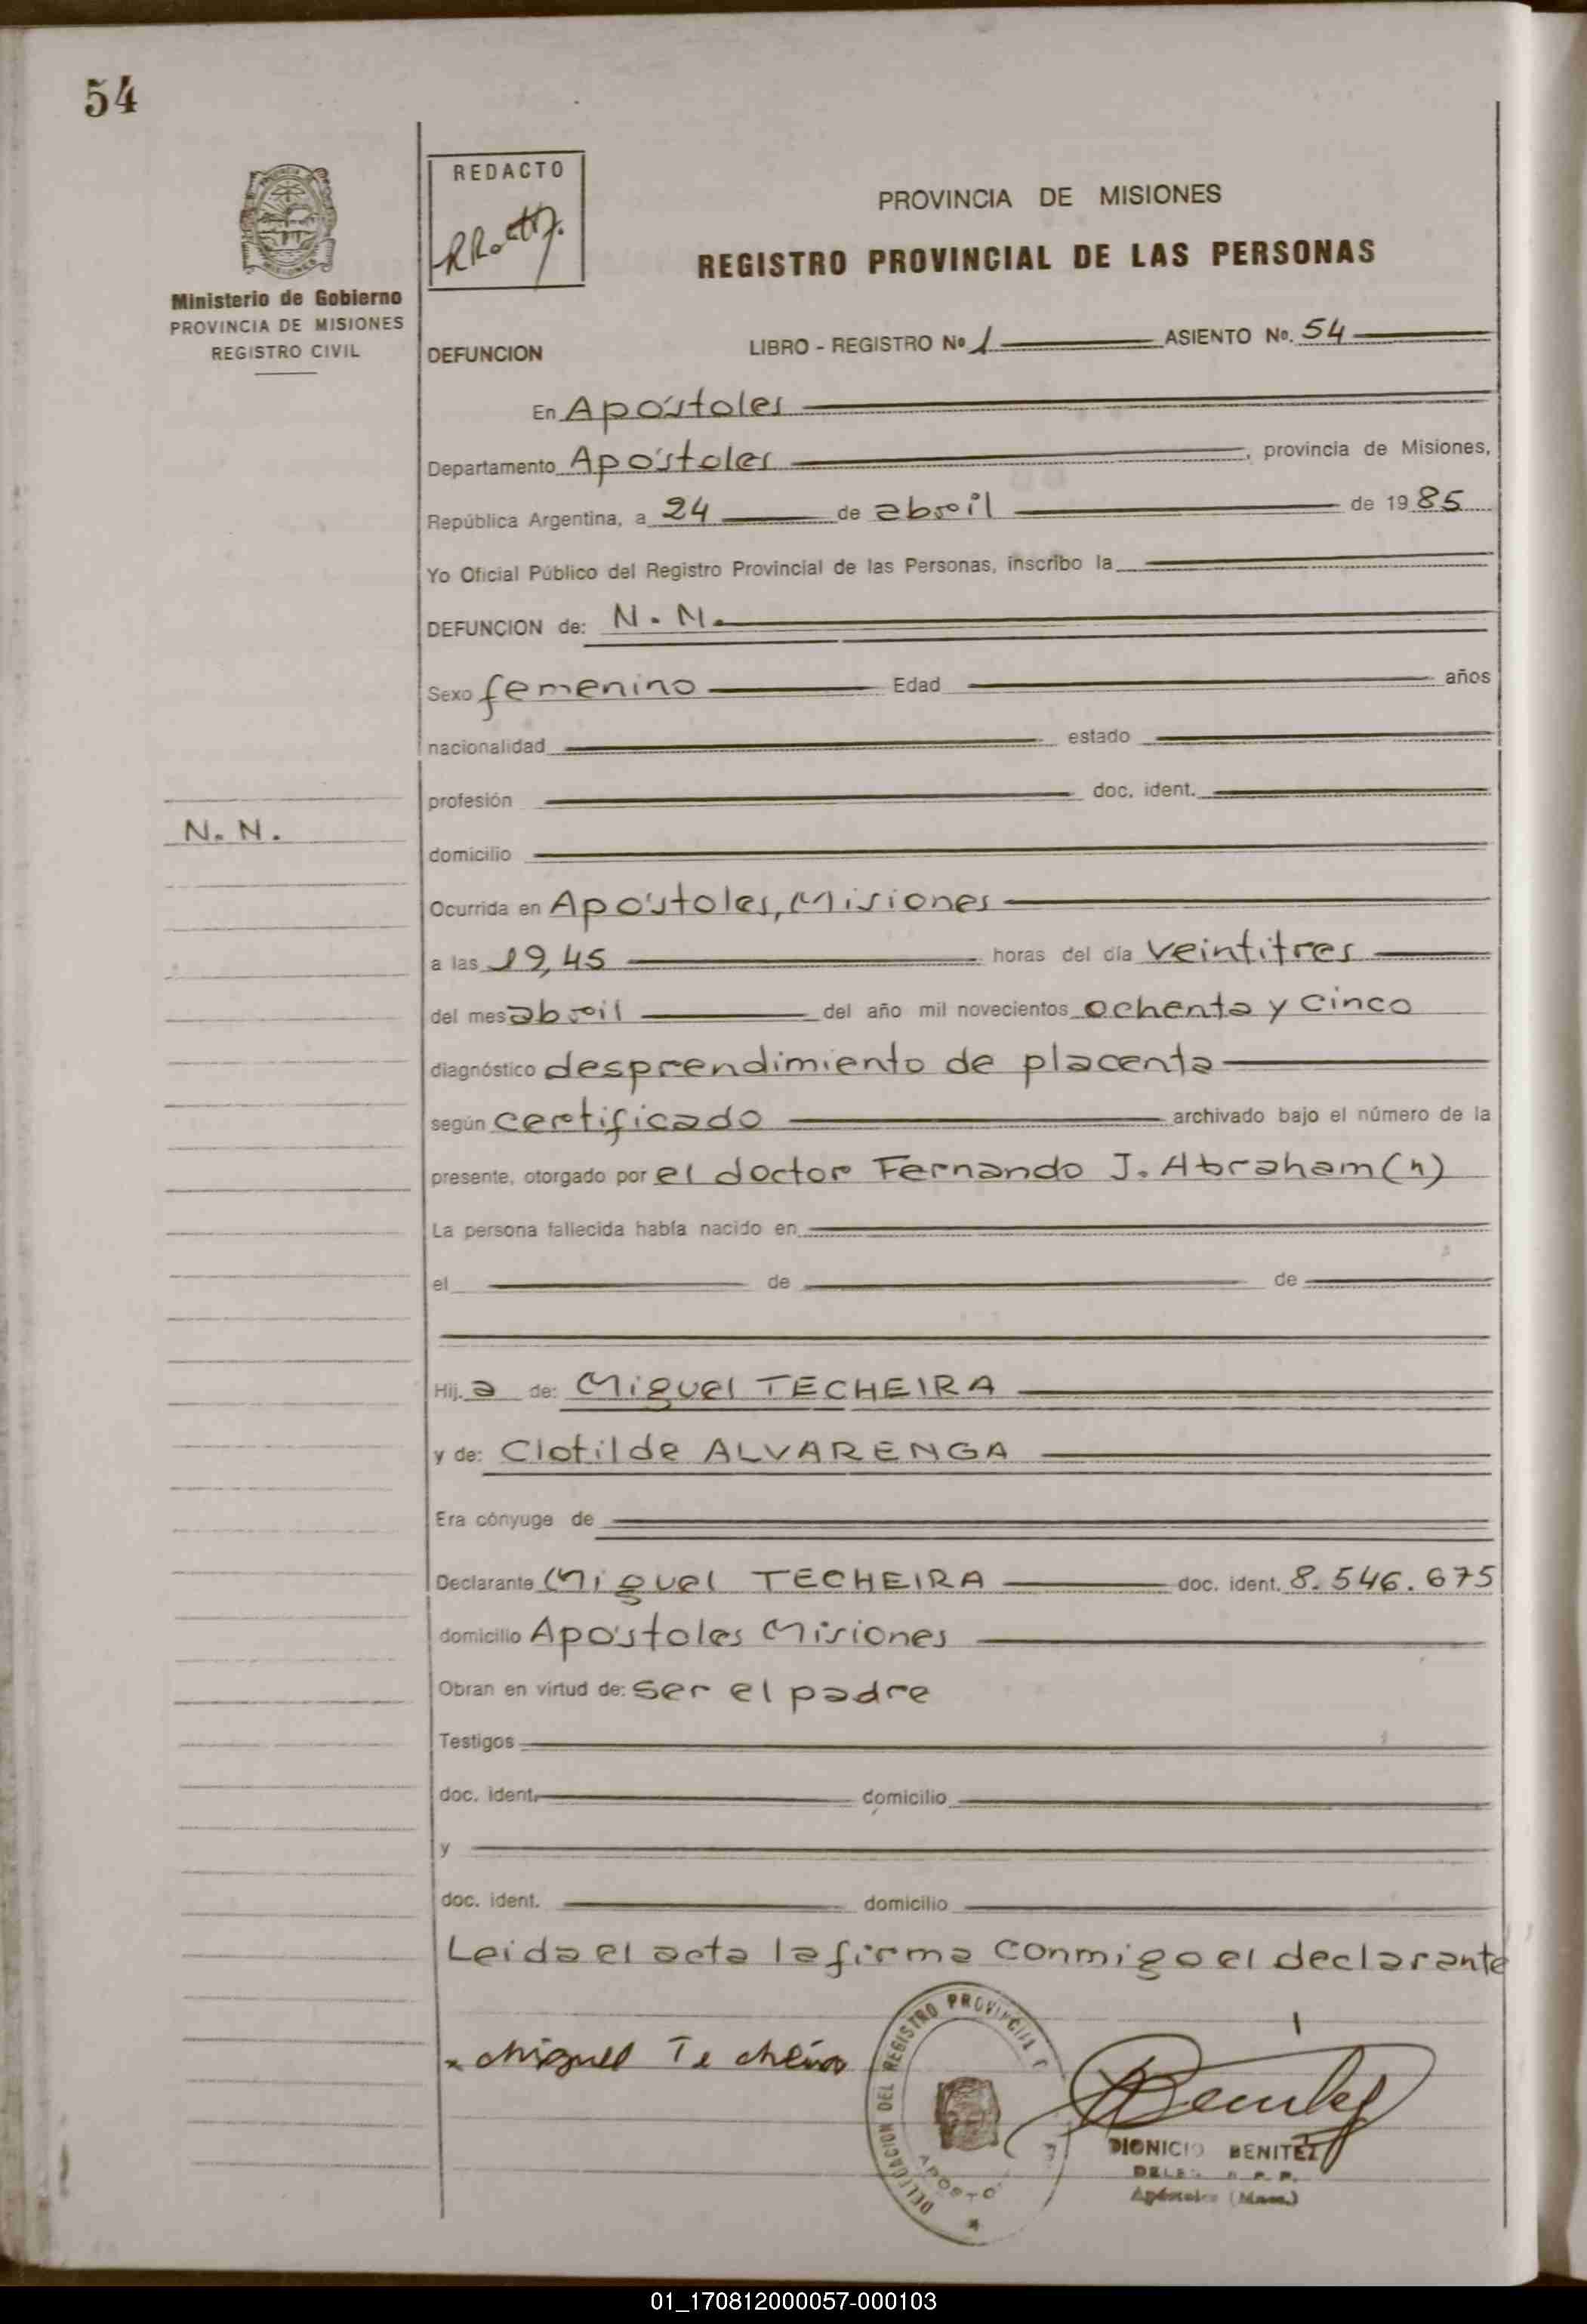 54
REDACTO
PROVINCIA DE MISIONES
REGISTRO PROVINCIAL DE LAS PERSONAS
Ministerio de Gobierno
PROVINCIA DE MISIONES
REGISTRO CIVIL
DEFUNCION LIBRO - REGISTRO Nº 1 ASIENTO Nº. 54
En Apóstoles
Departamento Apóstoles, provincia de Misiones,
República Argentina, a 24 de abril de 1985
Yo Oficial Público del Registro Provincial de las Personas, inscribo la
DEFUNCION de: N. N.
Sexo femenino Edad años
nacionalidad estado
profesión doc. ident.
N. N.
domicilio
Ocurrida en Apóstoles, Misiones
a las 19,45 horas del día veintitres
del mes abril del año mil novecientos ochenta y cinco
diagnóstico desprendimiento de placenta
según certificado archivado bajo el número de la
presente, otorgado por el doctor Fernando J. Abraham (h)
La persona fallecida había nacido en
el de de
Hij.a de: Miguel TECHEIRA
y de: Clotilde ALVARENGA
Era cónyuge de
Declarante Miguel TECHEIRA doc. ident. 8.546.675
domicilio Apóstoles Misiones
Obran en virtud de: ser el padre
Testigos
doc. ident. domicilio
y
doc. ident. domicilio
Leida el acta la firma conmigo el declarante
Miguel Techeira
DELEGACION DEL REGISTRO PROVINCIAL
APOSTO
Benitez
DIONICIO BENITEZ
Apóstoles (Mnes.)
01_170812000057-000103